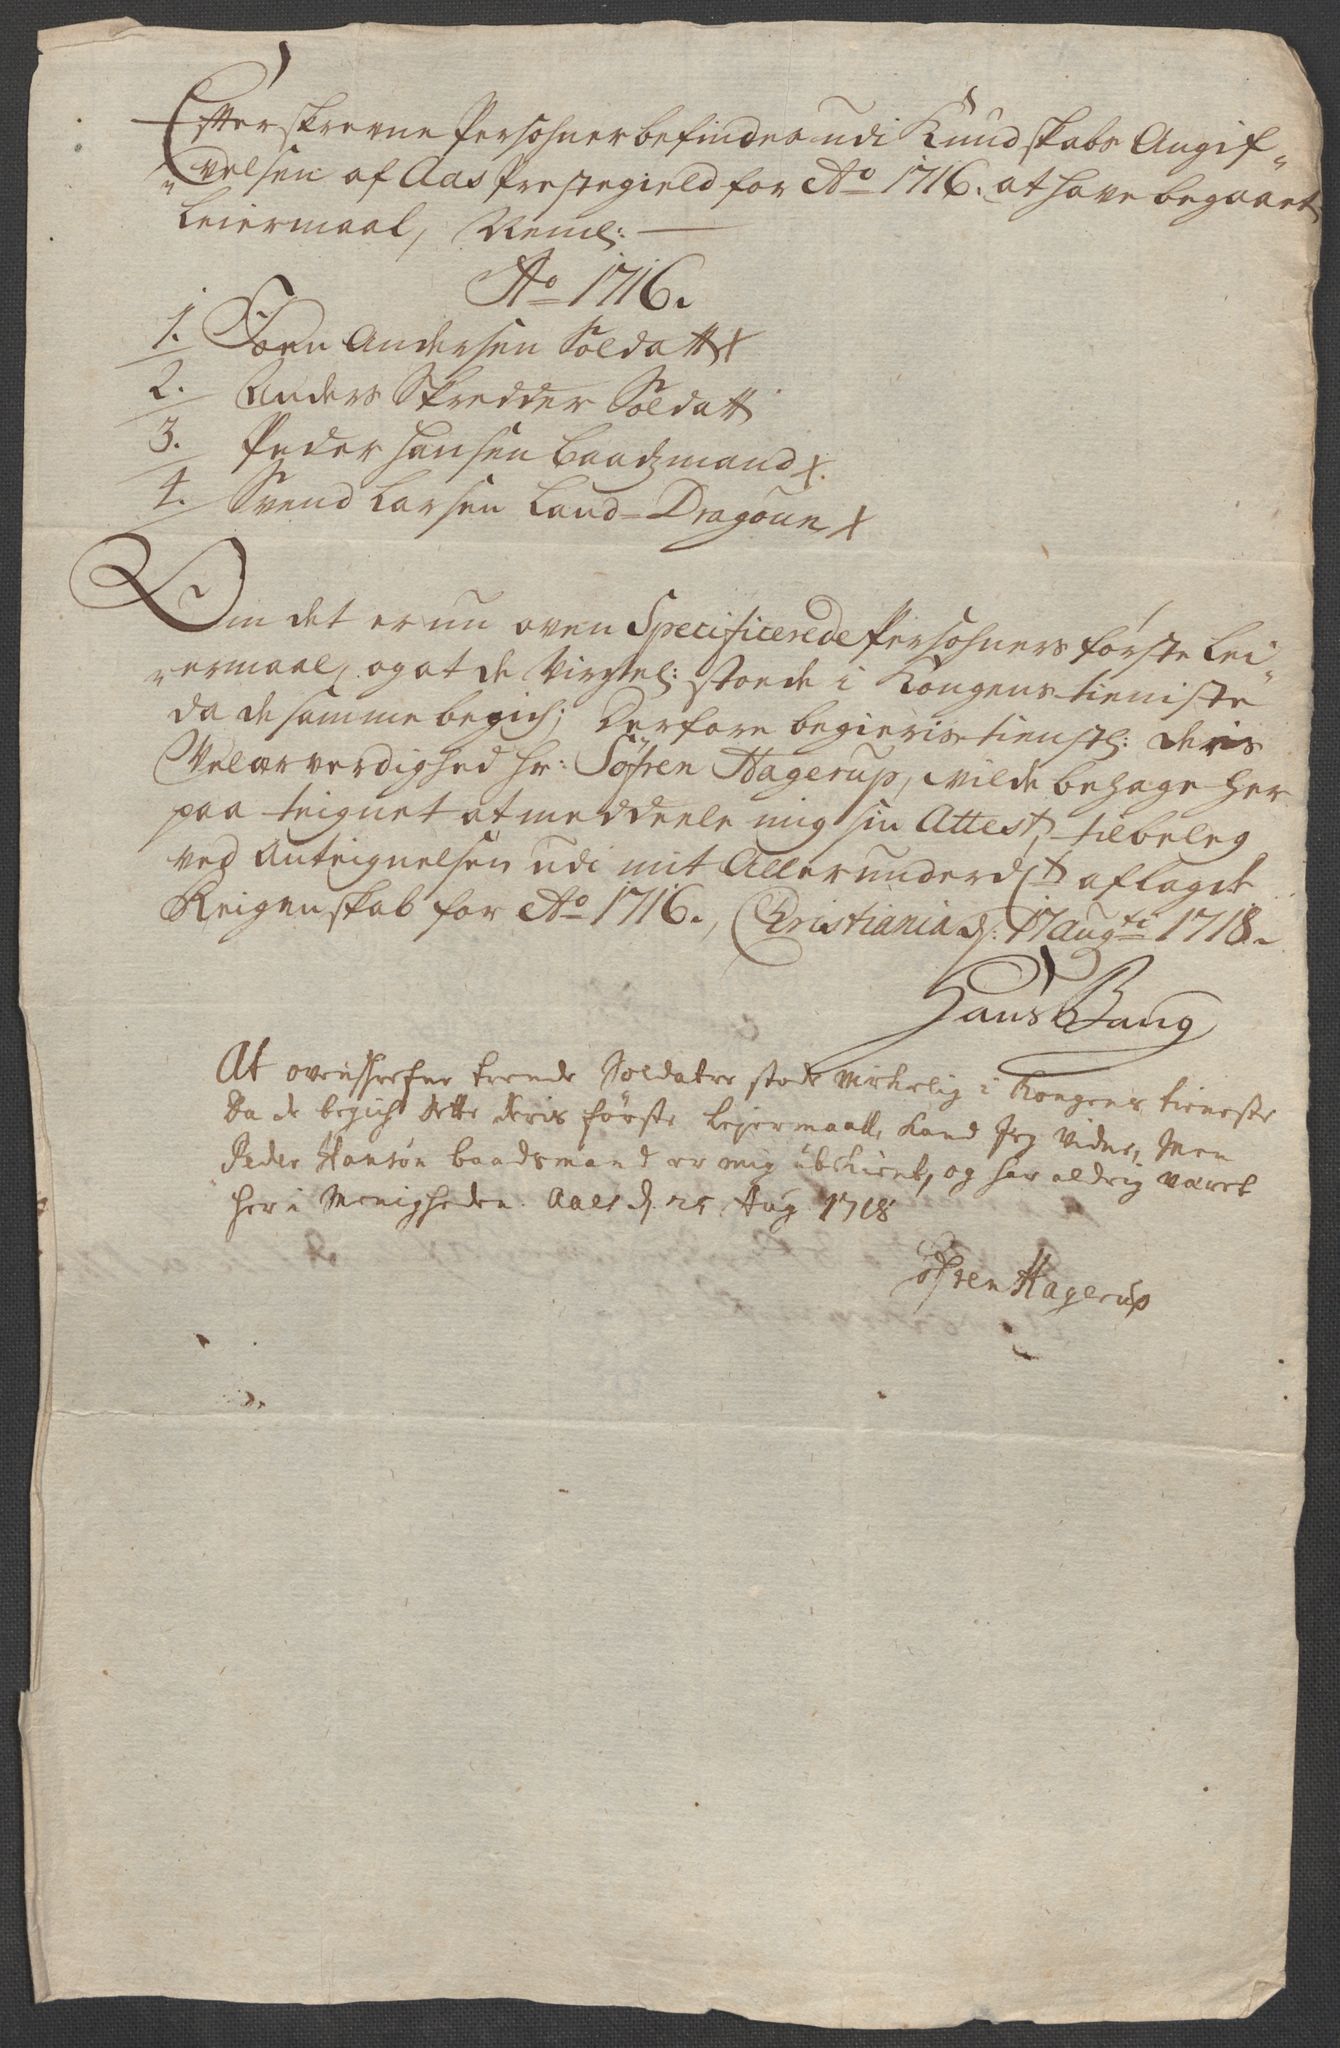 Efterskrevne Persohner befindes udi Kundskabs Angif=
"velsen af Aas Prestegield for Ao 1716. at have begaaet
Leiermaal, Neml:
Ao 1716.
1. Jörn Andersen Soldatt x
2. Anders Skredder Soldatt
3. Peder Hansen Baadzmand x.
4. Svend Larsen Land-Dragoun x
Om det er nu oven Specificerede Persohners første Lei"
"ermaal, og at de Virchel: stoede i Kongens tieniste
da de samme begich; Derfore begieris tienstl: deris
Velærverdighed Hr: Söfren Hagerup, vilde behage her
paa teignet at meddeele mig sin Attest, til beleg
ved Anteignelsen udi mit Allerunderdt aflagde
Reigenskab for Ao 1716., Christiania d: 17 Augti 1718.
Hans Bang
At ovenschrefne trende Soldater stode Virkelig i Kongens tieneste
da de begich dette deris förste Lejermaall, kand Jeg Vidne, Men
Peder Hansøn baadsmand er mig ubekient, og har aldrig været
her i Menigheden. Aass d. 25 Aug 1718
Söfren Hagerup